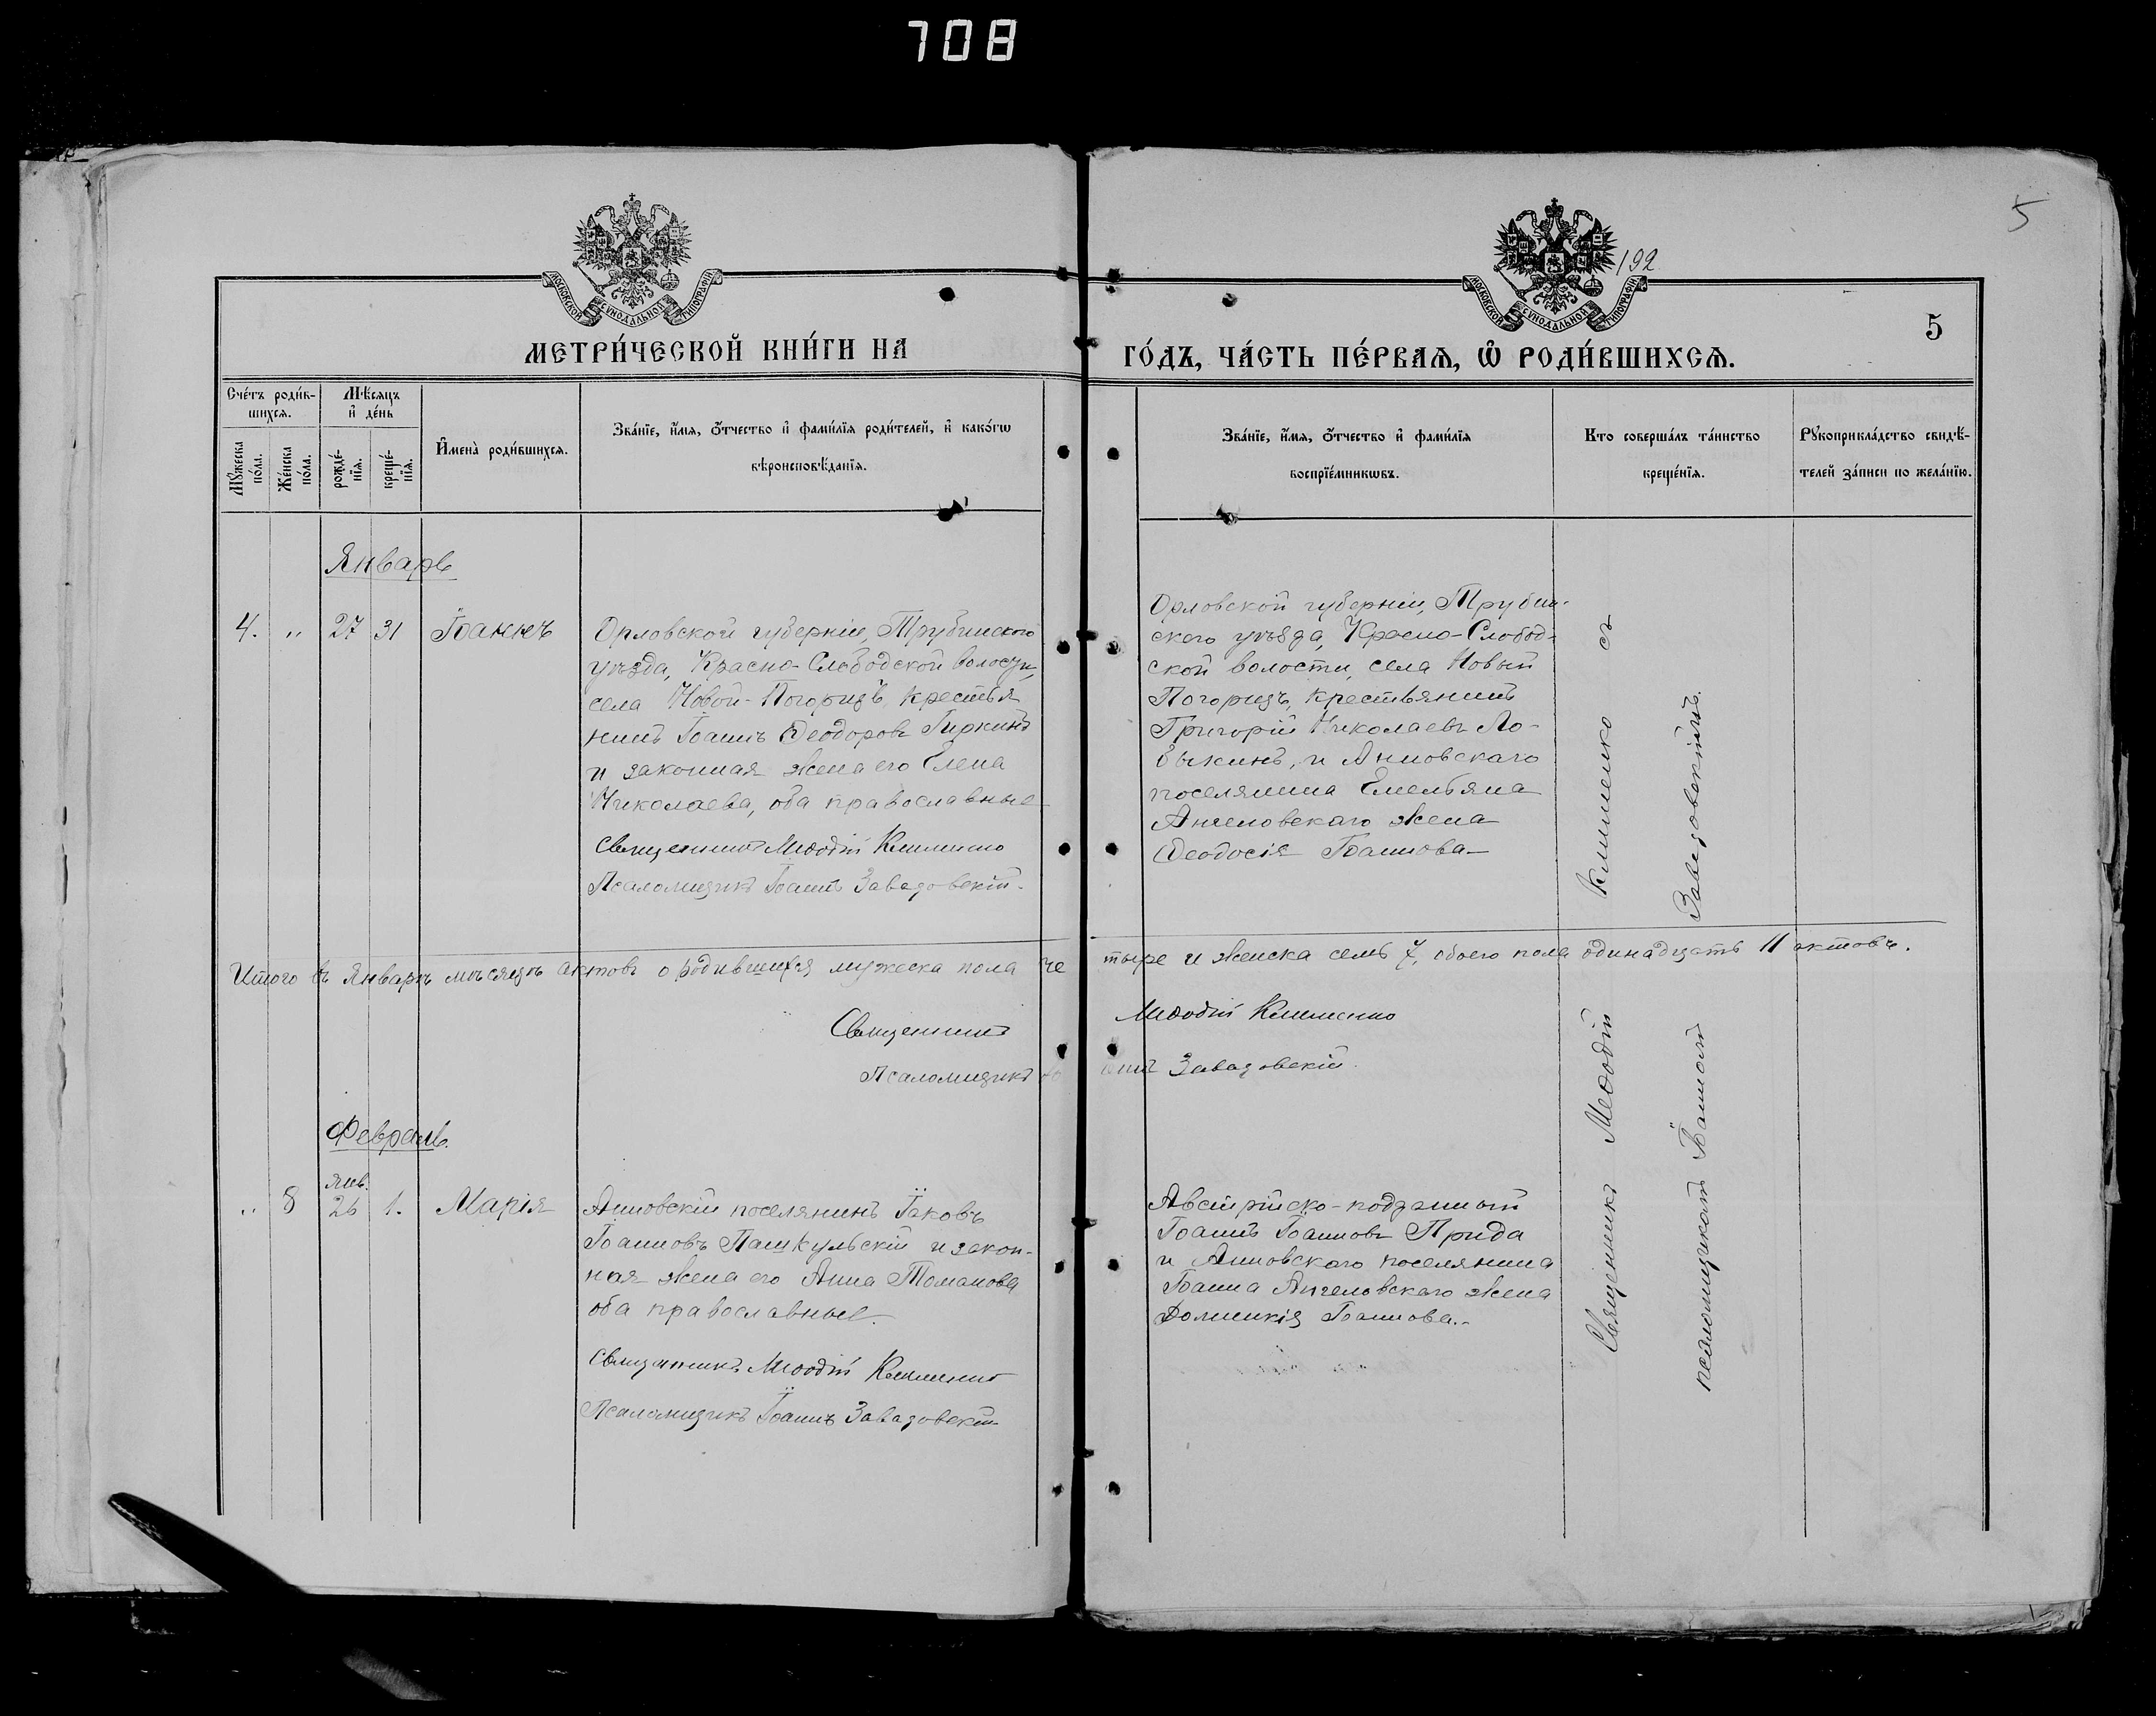 708
5
192
МОСКОВСКОЙ СѴНОДАЛЬНОЙ ТИПОГРАФІИ
МОСКОВСКОЙ СѴНОДАЛЬНОЙ ТИПОГРАФІИ
5
МЕТРИ́ЧЕСКОЙ КНИ́ГИ НА
ГО́ДЪ, ЧА́СТЬ ПЕ́РВАѦ, Ѽ РОДИ́ВШИХСѦ.
Сче́тъ роди́в-
шихсѧ.
Мѣ́сяцъ
и҆ де́нь
Мꙋ́жеска
по́ла.
Же́нска
по́ла.
рожде́-
нїѧ.
креще́-
нїѧ.
И҆мена̀ роди́вшихсѧ.
Зва́нїе, и҆́мѧ, ѻ҆́тчество и҆ фами́лїѧ роди́телей, и҆ како́гѡ
вѣроисповѣ́данїѧ.
Зва́нїе, и҆́мѧ, ѻ҆́тчество и҆ фами́лїѧ
воспрїе́мникѡвъ.
Кто соверша́лъ та́инство
креще́нїѧ.
Рꙋкоприкла́дство свидѣ́-
телей за́писи по жела́нїю.
Январь
4. " 27 31 Іоаннъ
Орловской губерніи, Трубчинского
уѣзда, Красно-Слободской волости,
села Новой-Погорицъ, крестья
нинъ Іоаннъ Ѳеодоровъ Гиркинъ
и законная жена его Елена
Николаева, оба православные
Священникъ Меѳодій Клименко
Псаломщикъ Іоаннъ Завадовскій.
Орловской губерніи, Трубчи-
скаго уѣзда, Красно-Слобод-
ской волости, села Новый
Погорицъ, крестьянинъ
Григорій Николаевъ Ло-
выкинъ, и Анновскаго
поселянина Емельяна
Ангеловскаго жена
Ѳеодосія Іоаннова
Итого въ Январѣ мѣсяцѣ актовъ о родившихся мужеска пола че
тыре и женска семь 7, обоего пола одинадцать 11 актовъ.
Священникъ Меѳодій Клименко
Псаломщикъ Іоаннъ Завадовскій.
Февраль.
янв.
" 8 26 1. Марія
Анновскій поселянинъ Іаковъ
Іоанновъ Пашкульскій и закон-
ная жена его Анна Томанова
оба православные.
Священникъ Меѳодій Клименко
Псаломщикъ Іоаннъ Завадовскій
Австрійско-подданный
Іоаннъ Іоанновъ Прида
и Анновскаго поселянина
Іоанна Ангеловскаго жена
Домникія Іоаннова.
Священникъ Меѳодій Клименко съ
псаломщикомъ Іоанномъ Завадовскимъ.